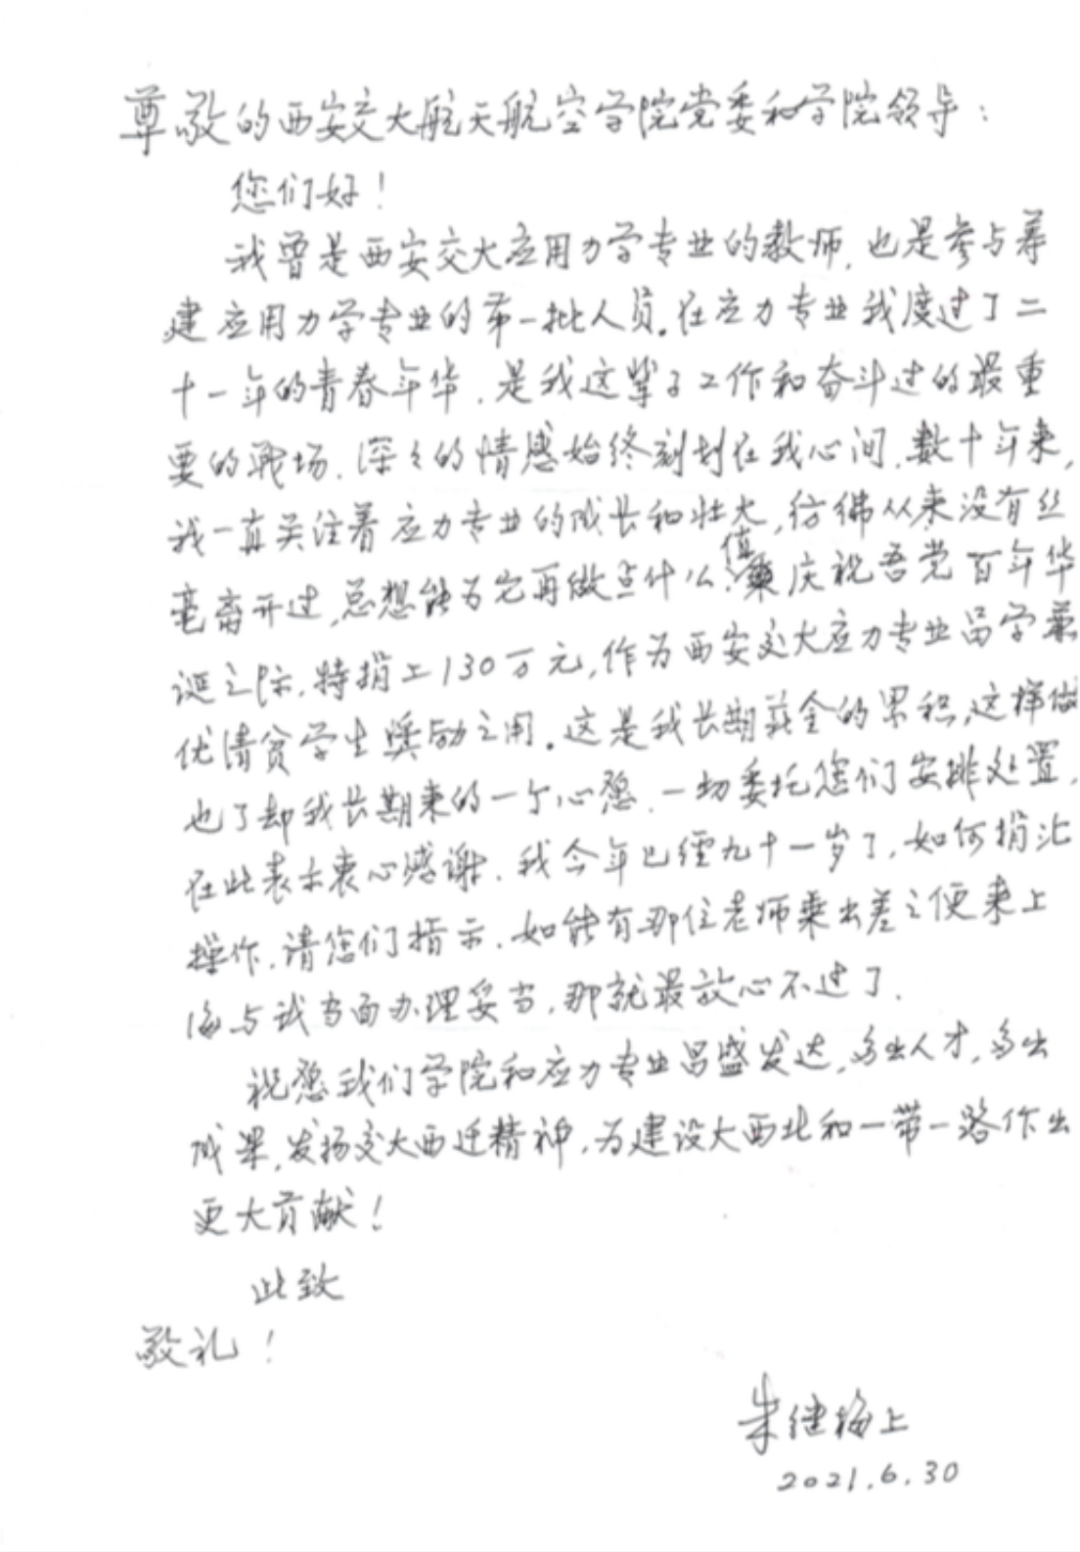 尊敬的西安交大航天航空学院党委和学院领导：
您们好！
我曾是西安交大应用力学专业的教师，也是参与筹
建应用力学专业的第一批人员。在应力专业我度过了二
十一年的青春年华，是我这辈子工作和奋斗过的最重
要的战场，深々的情感始终刻划在我心间，数十年来，
我一直关注着应力专业的成长和壮大，彷彿从来没有丝
毫离开过，总想能为它再做点什么，值庆祝吾党百年华
诞之际，特捐上130万元，作为西安交大应力专业品学兼
优清贫学生奖励之用。这是我长期薪金的累积，这样做
也了却我长期来的一个心愿，一切委托您们安排处置，
在此表示衷心感谢。我今年已经九十一岁了，如何捐汇
操作，请您们指示，如能有那位老师乘出差之便来上
海与我当面办理妥当，那就最放心不过了。
祝愿我们学院和应力专业昌盛发达，多出人才，多出
成果，发扬交大西迁精神，为建设大西北和一带一路作出
更大贡献！
此致
敬礼！
朱继梅上
2021.6.30